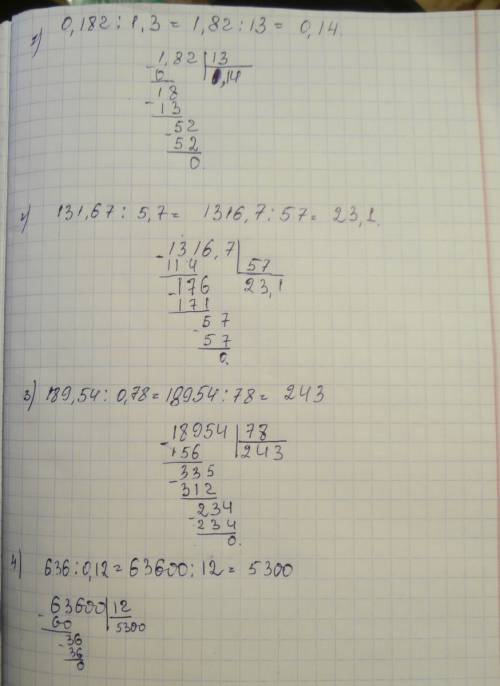 1) 0,182 : 1,3 = 1,82 : 13 = 0,14.
- 1,82 | 13
0 | 0,14
- 18
13
- 52
52
0.
2) 131,67 : 5,7 = 1316,7 : 57 = 23,1.
- 1316,7 | 57
114 | 23,1
- 176
171
- 57
57
0.
3) 189,54 : 0,78 = 18954 : 78 = 243
- 18954 | 78
156 | 243
- 335
312
- 234
234
0.
4) 636 : 0,12 = 63600 : 12 = 5300
- 63600 | 12
60 | 5300
- 36
36
0